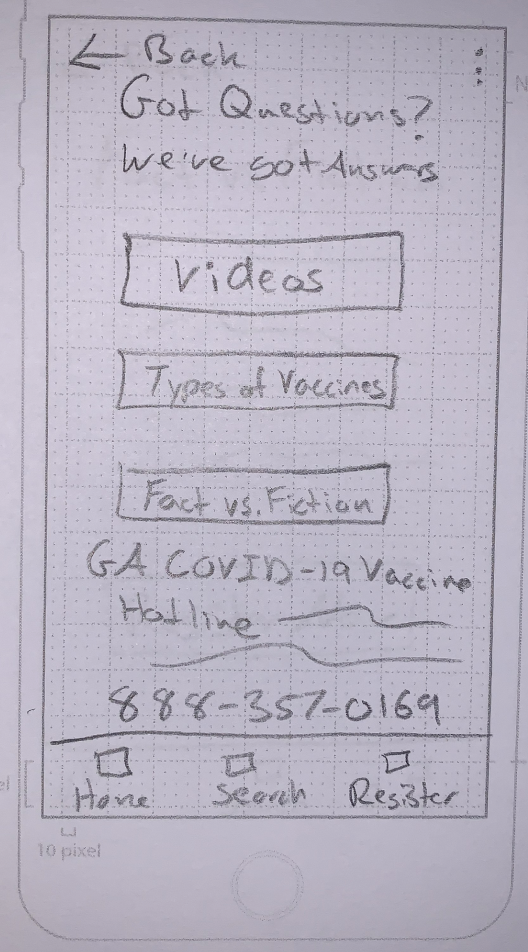 ← Back
Got Questions?
We've got Answers
Videos
Types of Vaccines
Fact vs. Fiction
GA COVID-19 Vaccine
Hotline
888-357-0169
Home Search Register
10 pixel